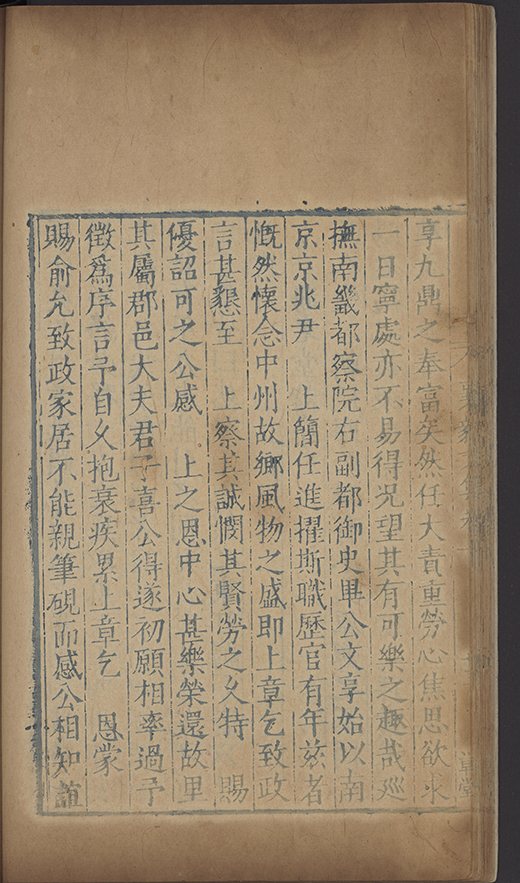 享九鼎之奉富矣然任大責重勞心焦思欲求
一日寧處亦不易得况望其有可樂之趣哉廵
撫南畿都察院右副都御史畢公文享始以南
京京兆尹 上簡任進擢斯職歷官有年兹者
慨然懷念中州故鄉風物之盛即上章乞致政
言甚懇至 上察其誠憫其賢勞之久特 賜
優詔可之公感 上之恩中心甚樂榮還故里
其屬郡邑大夫君子喜公得遂初願相率過予
徵爲序言予自久抱衰疾累上章乞 恩蒙
賜俞允致政家居不能親筆硯而感公相知誼